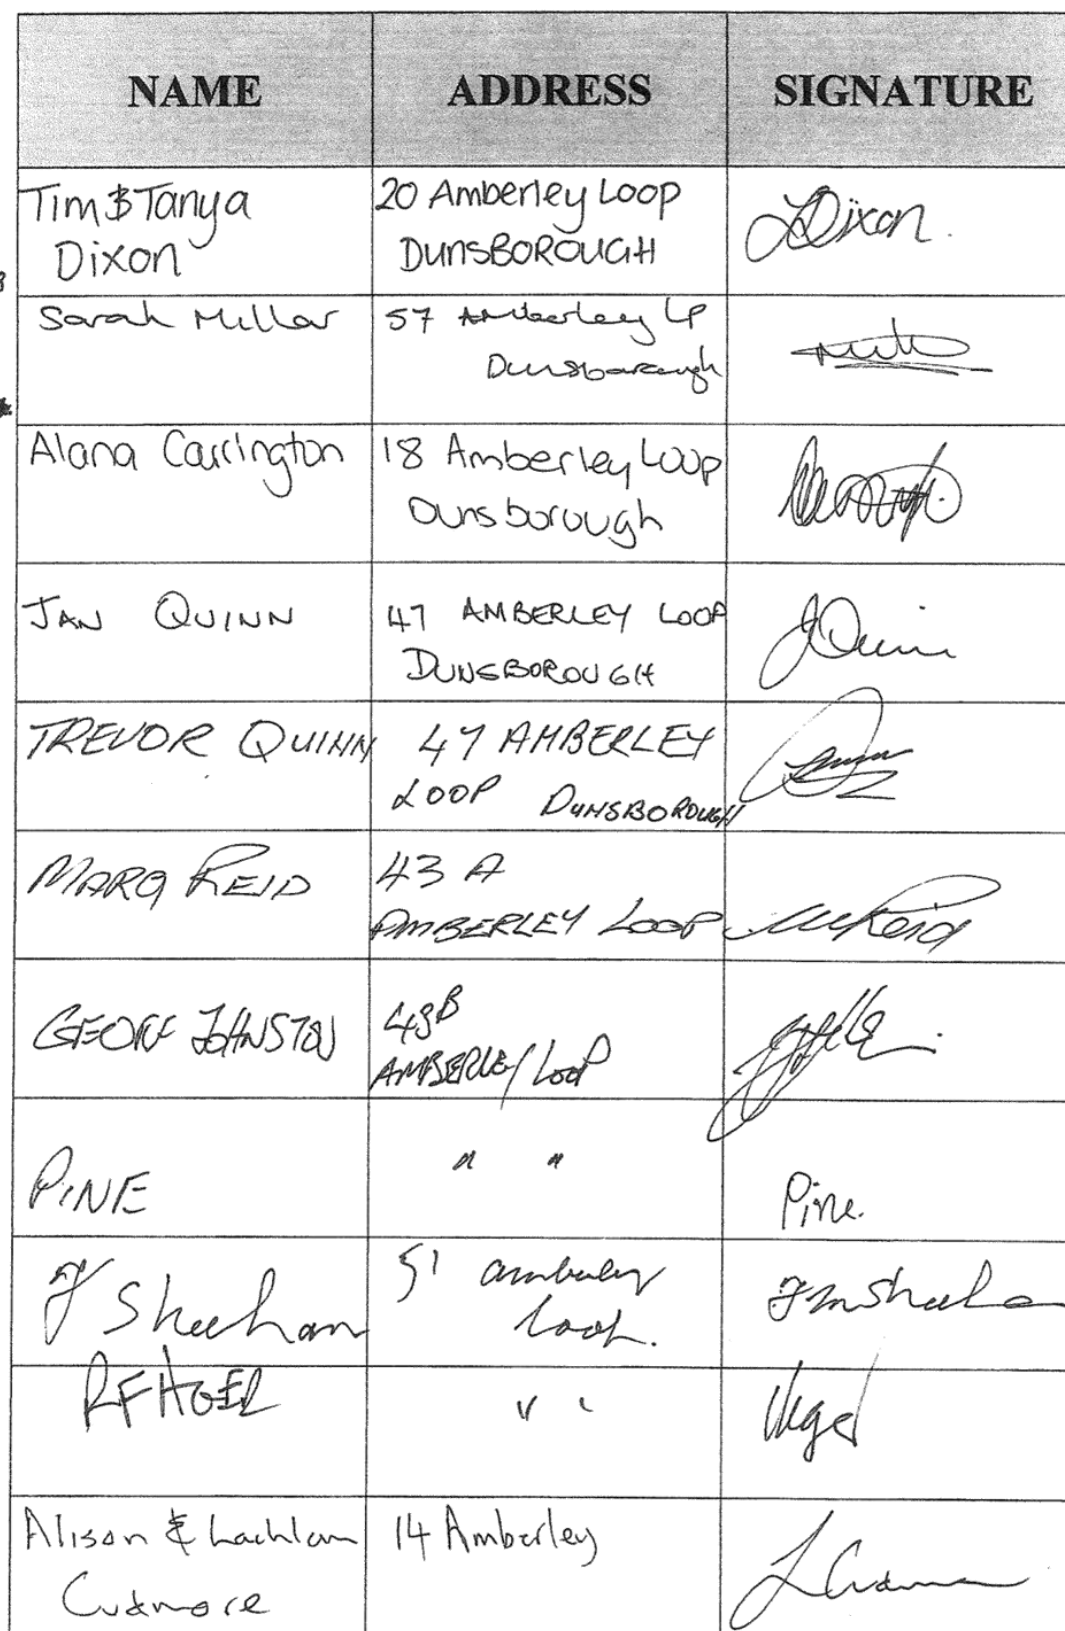 NAME ADDRESS SIGNATURE
Tim & Tanya 20 Amberley Loop
Dixon DUNSBOROUGH Dixon.
Sarah Millar 57 Amberley Lp
Dunsborough
Alana Carrington 18 Amberley Loop
Dunsborough
JAN QUINN 47 AMBERLEY LOOP JQuinn
DUNSBOROUGH
TREVOR QUINN 47 AMBERLEY
LOOP DUNSBOROUGH
MARG REID 43 A
AMBERLEY LOOP Reid
GEOFF JOHNSTON 43B
AMBERLEY LOOP
PINE " " Pine.
J Sheehan 51 amberley
Loop.
Alison & Lachlan 14 Amberley
Cudmore